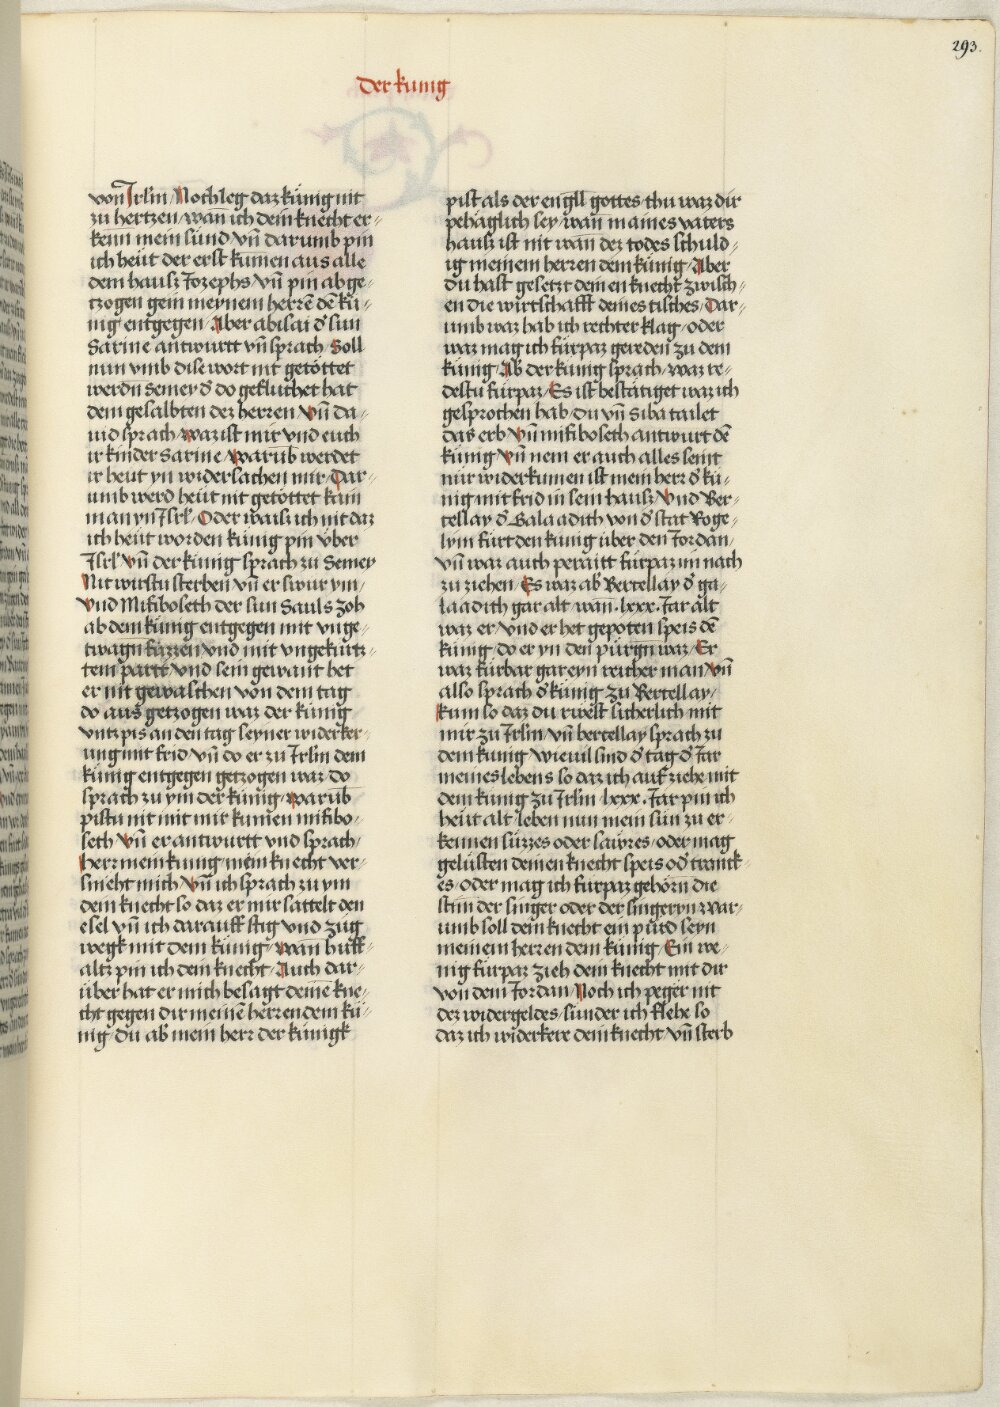 293.
der kunig
von Jrlm / Noch leg daz kunig nit
zu hertzen / wan̄ ich dein knecht er-
kenn mein sünd vn̄ darumb pin
ich heüt der erst kumen aus alle
dem hausz Jozephs / vn̄ pin abge-
tzogen gein meynem herrē dē kü-
nig entgegen / Aber abisai d̄ sun
Sarvie antwurtt vn̄ sprach / Soll
nun vmb dise wort nit getöttet
werdn Semey d̄ do gefluchet hat
dem gesalbten dez herren / Vn̄ da-
uid sprach / waz ist mir vnd euch
ir kinder Sarvie / Warūb werdet
ir heut yn widersachen mir / Dar-
umb werd heüt nit getöttet kain
man yn Jsrl / Oder waisz ich nit daz
ich heüt worden künig pin über
Jsrl / Vn̄ der künig sprach zu Semey
Nit wirstu sterben vn̄ er swur ym /
Vnd Mifiboseth der sun Sauls zoh
ab dem künig entgegen mit vnge-
twagn füzzen vnd mit vngekürtz-
tem partt / vnd sein gewant het
er nit gewaschen von dem tag
do aus getzogen waz der künig
vntz pis an den tag seyner widerker-
ung mit frid / vn̄ do er zu Jrlm dem
künig entgegen getzogen waz / do
sprach zu ym der künig / Warūb
pistu nit mit mir kumen mifibo-
seth / Vn̄ er antwurtt vnd sprach /
herr mein kunig / mein knecht ver-
smeht mich / Vn̄ ich sprach zu ym
dem knecht so daz er mir sattelt den
esel vn̄ ich darauff stig vnd züg
wegk mit dem künig / wan̄ huff-
altz pin ich dein knecht / Auch dar-
über hat er mich besagt deinē kne-
cht gegen dir meinē herren dem kü-
nig / du ab mein herr der künigk
pist als der engll gottes / thu waz dir
pehäglich sey / wan̄ maines vaters
hausz ist nit wan dez todes schuld-
ig meinem herren dem künig / Aber
du hast gesetzt deinen knecht zwisch-
en die wirtschafft deines tisches / Dar-
umb waz hab ich rechter klag / oder
waz mag ich fürpaz gereden̄ zu dem
künig / Ab der kunig sprach / waz re-
destu fürpaz / Es ist bestätiget waz ich
gesprochen hab / du vn̄ Siba tailet
das erb / Vn̄ mifiboseth antwurt dē
künig / Vn̄ nem er auch alles seint
mir widerkumen ist mein herr d̄ kü-
nig mit frid in sein hausz / Vnd Ber-
tellay d̄ Galaadith von d̄ stat Roge-
lym fürt den künig über den Jordan /
vn̄ waz auch peraitt fürpaz im nach
zu ziehen / Es waz ab Bertellay d̄ ga-
laadith gar alt / wan̄ .lxxx. Jar alt
waz er / vnd er het gepoten speis dē
künig / do er yn den pürgn waz / Er
waz fürbar gar eyn reicher man / Vn̄
also sprach d̄ künig zu Bertellay /
kum so daz du rwest sicherlich mit
mir zu Jrlm / vn̄ bertellay sprach zu
dem künig / wieuil sind d̄ tag d̄ Jar
meines lebens / so daz ich auf ziehe mit
dem künig zu Jrlm / lxxx. Jar pin ich
heüt alt / leben nun mein sün zu er-
kennen süzzes oder sawres / oder mag
gelüsten deinen knecht speis od̄ tranck-
es / oder mag ich fürpaz gehörn̄ die
stim der singer oder der singeryn / war-
umb soll dein knecht ein pürd seyn
meinem herren dem künig / Ein we-
nig fürpaz zieh dein knecht mit dir
von dem Jordan / Noch ich peger nit
dez widergeldes / sünder ich flehe so
daz ich widerkere dein knecht / vn̄ sterb